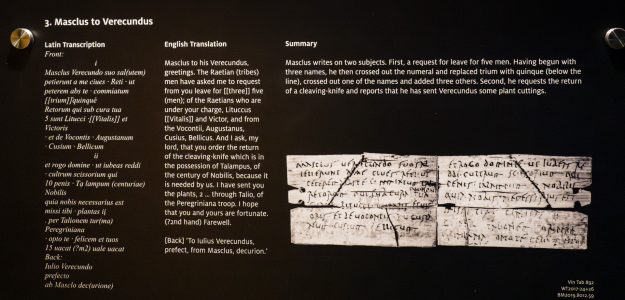 3. Masclus to Verecundus
Latin Transcription
Front:
i
Masclus Verecundo suo sal(utem)
petierunt a me ciues · Reti · ut
peterem abs te · commiatum
[[trium]]quinquē
Retorum qui sub cura tua
5 sunt Litucci ·[[Vitalis]] et
Victoris
· et de Vocontis · Augustanum
· Cusium · Bellicum
ii
et rogo domine · ut iubeas reddi
· cultrum scissorium qui
10 penis · Talampum (centuriae)
Nobilis
quia nobis necessarius est
missi tibi · plantas ij
. per Talionem tur(ma)
Peregriniana
· opto te · felicem et tuos
15 uacat (?m2) uale uacat
Back:
Iulio Verecundo
prefecto
ab Masclo dec(urione)
English Translation
Masclus to his Verecundus,
greetings. The Raetian (tribes)
men have asked me to request
from you leave for [[three]] five
(men); of the Raetians who are
under your charge, Lituccus
[[Vitalis]] and Victor, and from
the Vocontii, Augustanus,
Cusius, Bellicus. And I ask, my
lord, that you order the return
of the cleaving-knife which is in
the possession of Talampus, of
the century of Nobilis, because it
is needed by us. I have sent you
the plants, 2 .. through Talio, of
the Peregriniana troop. I hope
that you and yours are fortunate.
(?2nd hand) Farewell.
[Back] 'To Iulius Verecundus,
prefect, from Masclus, decurion.'
Summary
Masclus writes on two subjects. First, a request for leave for five men. Having begun with
three names, he then crossed out the numeral and replaced trium with quinque (below the
line), crossed out one of the names and added three others. Second, he requests the return
of a cleaving-knife and reports that he has sent Verecundus some plant cuttings.
Vin Tab 892
WT2017.24+26
BM2019,8012.59